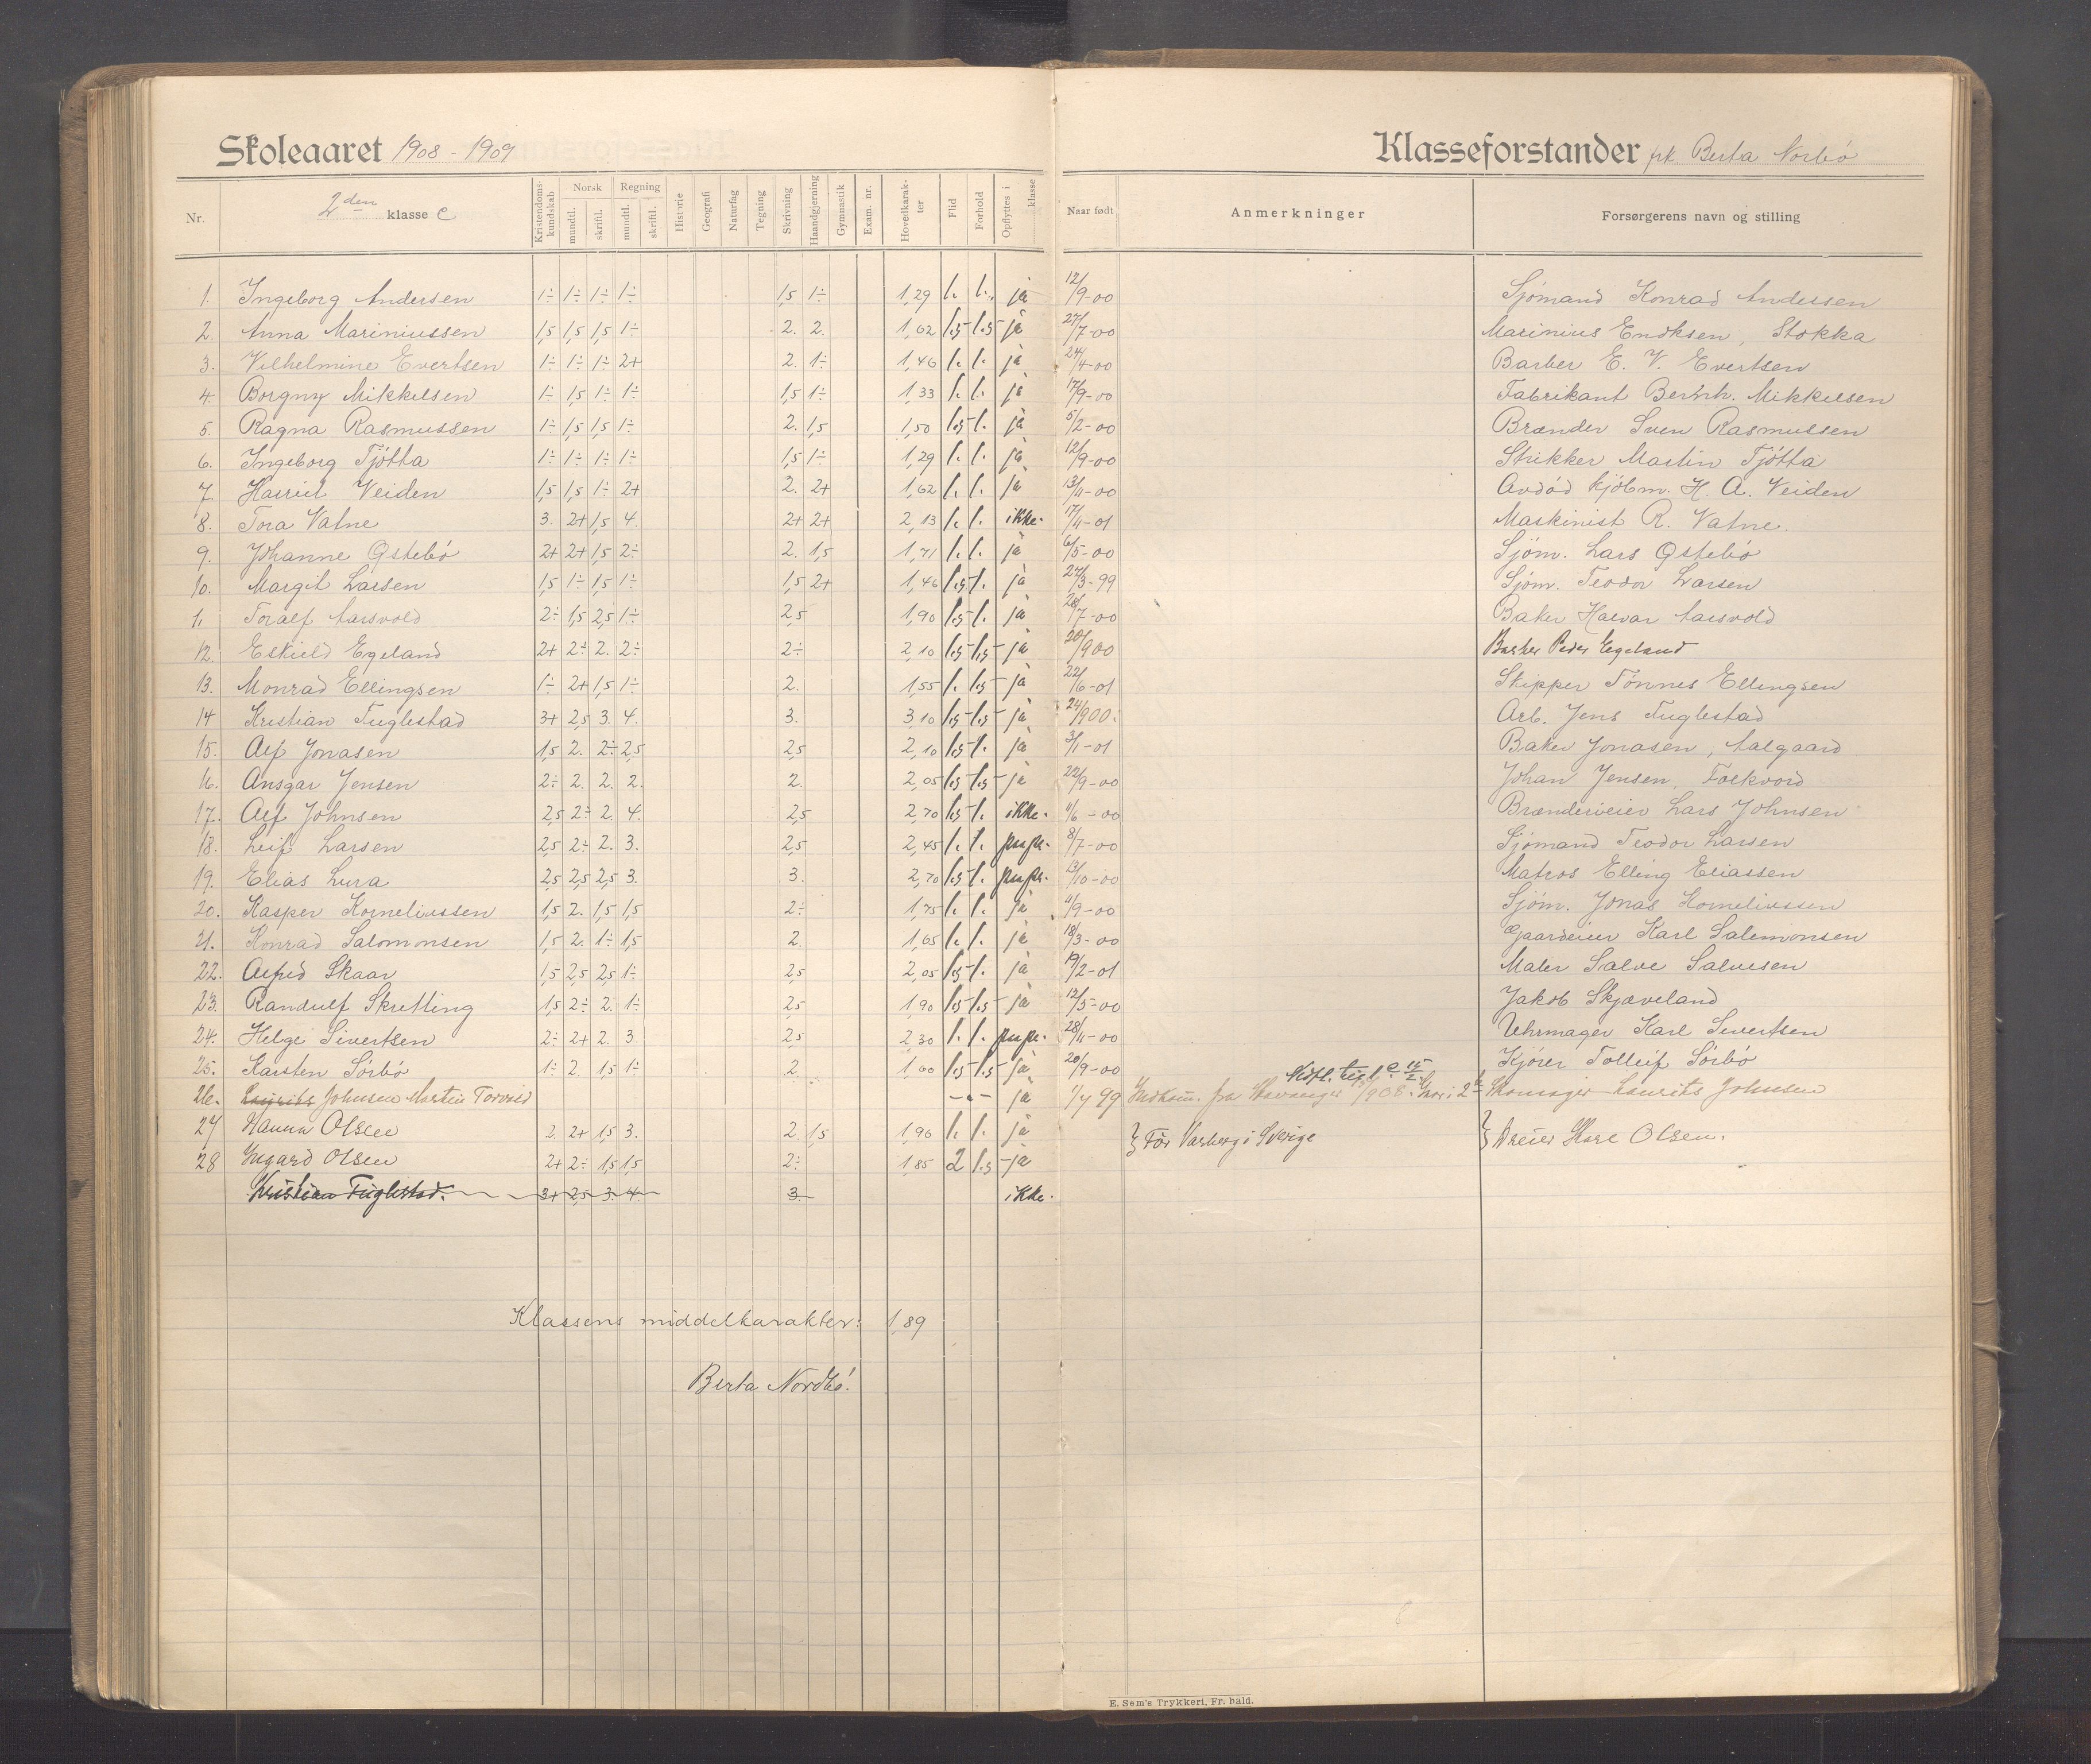 Skoleaaret 1908 - 1909
Klasseforstander frk. Berta Norbö
Nr. 2den klasse C Kristendoms-kundskab Norsk mundtl. skriftl. Regning mundtl. skriftl. Historie Geografi Naturfag Tegning Skrivning Haandgjerning Gymnastik Exam. nr. Hovedkarak-ter Flid Forhold Opflyttes i klasse Naar født Anmerkninger Forsørgerens navn og stilling
1. Ingeborg Andersen 1÷ 1÷ 1÷ 1÷ 1,5 1÷ 1,29 1. 1. ja 12/9-00 Sjömand Konrad Andersen
2. Anna Mariniussen 1,5 1,5 1,5 1÷ 2. 2. 1,62 1.5 1.5 ja 27/7-00 Marinius Endksen, Stokka
3. Vilhelmine Evertsen 1÷ 1÷ 1÷ 2+ 2. 1÷ 1,46 1. 1. ja 24/4-00 Barber E. V. Evertsen
4. Borgny Mikkelsen 1÷ 1,5 1÷ 1÷ 1,5 1÷ 1,33 1. 1. ja 17/9-00 Fabrikant Bernh. Mikkelsen
5. Ragna Rasmussen 1÷ 1,5 1,5 1÷ 2. 1,5 1,50 1.5 1. ja 5/2-00 Brænder Sven Rasmussen
6. Ingeborg Tjötta 1÷ 1÷ 1÷ 1÷ 1,5 1÷ 1,29 1. 1. ja 12/9-00 Strikker Martin Tjötta
7. Harriet Veiden 1,5 1,5 1÷ 2+ 2. 2+ 1,62 1. 1. ja 13/11-00 Avdöd kjöbm. H. A. Veiden
8. Tora Vatne 3. 2+ 1,5 4. 2+ 2+ 2,13 1. 1. ikke. 17/4-01 Maskinist R. Vatne.
9. Johanne Østebö 2+ 2+ 1,5 2÷ 2. 1,5 1,71 1. 1. ja 6/5-00 Sjöm. Lars Østebö
10. Margit Larsen 1,5 1÷ 1,5 1÷ 1,5 2+ 1,46 1.5 1. ja 27/3-99 Sjöm. Teodor Larsen
11. Toralf Aarsvold 2÷ 1,5 2,5 1÷ 2,5 1,90 1.5 1. ja 28/7-00 Baker Halvar Aarsvold
12. Eskild Egeland 2+ 2÷ 2. 2÷ 2÷ 2,10 1.5 1.5 ja 20/900 Barber Peder Egeland
13. Monrad Ellingsen 1÷ 2+ 1,5 1÷ 2. 1,55 1. 1.5 ja 22/6-01 Skipper Tönnes Ellingsen
14 Kristian Fuglestad 3+ 2,5 3. 4. 3. 3,10 1.5 1.5 ja 24/900. Arb. Jens Fuglestad
15. Alf Jonasen 1,5 2. 2÷ 2,5 2,5 2,10 1.5 1. ja 3/1-01 Baker Jonasen, Aalgaard
16. Ansgar Jensen 2÷ 2. 2. 2. 2. 2,05 1.5 1.5 ja 22/9-00 Johan Jensen, Folkvord
17. Alf Johnsen 2,5 2÷ 2. 4. 2,5 2,70 1.5 1. ikke. 11/6-00 Brænderieier Lars Johnsen
18. Leif Larsen 2,5 2÷ 2. 3. 2,5 2,45 1. 1. pupr. 8/7-00 Sjömand Teodor Larsen
19. Elias Lura 2,5 2,5 2,5 3. 3. 2,70 1.5 1. pupr. 13/10-00 Matros Elling Eliassen
20. Kasper Korneliussen 1,5 2. 1,5 1,5 2÷ 1,75 1. 1. ja 11/9-00 Sjöm. Jonas Korneliussen
21. Konrad Salomonsen 1,5 2. 1÷ 1,5 2. 1,65 1. 1. ja 18/3-00 Gaardeier Karl Salomonsen
22. Alfred Skaar 1,5 2,5 2,5 1÷ 2,5 2,05 1.5 1. ja 19/2-01 Maler Salve Salvesen
23. Randulf Skretting 1,5 2÷ 2. 1÷ 2,5 1,90 1.5 1.5 ja 12/5-00 Jakob Skjæveland
24. Helge Sivertsen 2÷ 2+ 2. 3. 2,5 2,30 1. 1. pupr. 28/11-00 Uhrmager Karl Sivertsen
25. Karsten Sörbö 1÷ 2. 1,5 1÷ 2. 1,60 1.5 1.5 ja 20/9-00 Kjörer Tolleif Sörbö
26. Laurits Johnsen Martin Torvald -"- ja 1/7 99 Indkom. fra Stavanger /908. Skomager Laurits Johnsen
27 Hanna Olsen 2. 2+ 1,5 3. 2. 1,5 1,96 1. 1. ja } För Varberg i Sverige } Dreier Karl Olsen.
28 Ingard Olsen 2+ 2÷ 1,5 1,5 2÷ 1,85 2 1.5 ja
Kristian Fuglestad. 3+ 2,5 3. 4. 3. ikke.
Klassens middelkarakter: 1,89
Berta Nordbö.
E. Sem's Trykkeri, Fr. hald.